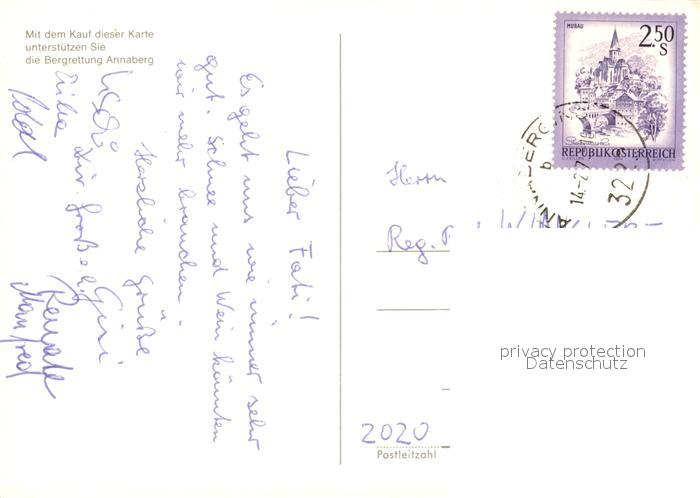 Mit dem Kauf dieser Karte
unterstützen Sie
die Bergrettung Annaberg
Lieber Fati!
Es geht uns wie immer sehr
gut. Schnee und Wein könnten
wir mehr brauchen.
Herzliche Grüße
Gini
Renate
Manfred
MURAU
2.50
S
REPUBLIK ÖSTERREICH
ANNABERG
b
14.-2.7
322
Herrn
Reg.
2020
Postleitzahl
privacy protection
Datenschutz